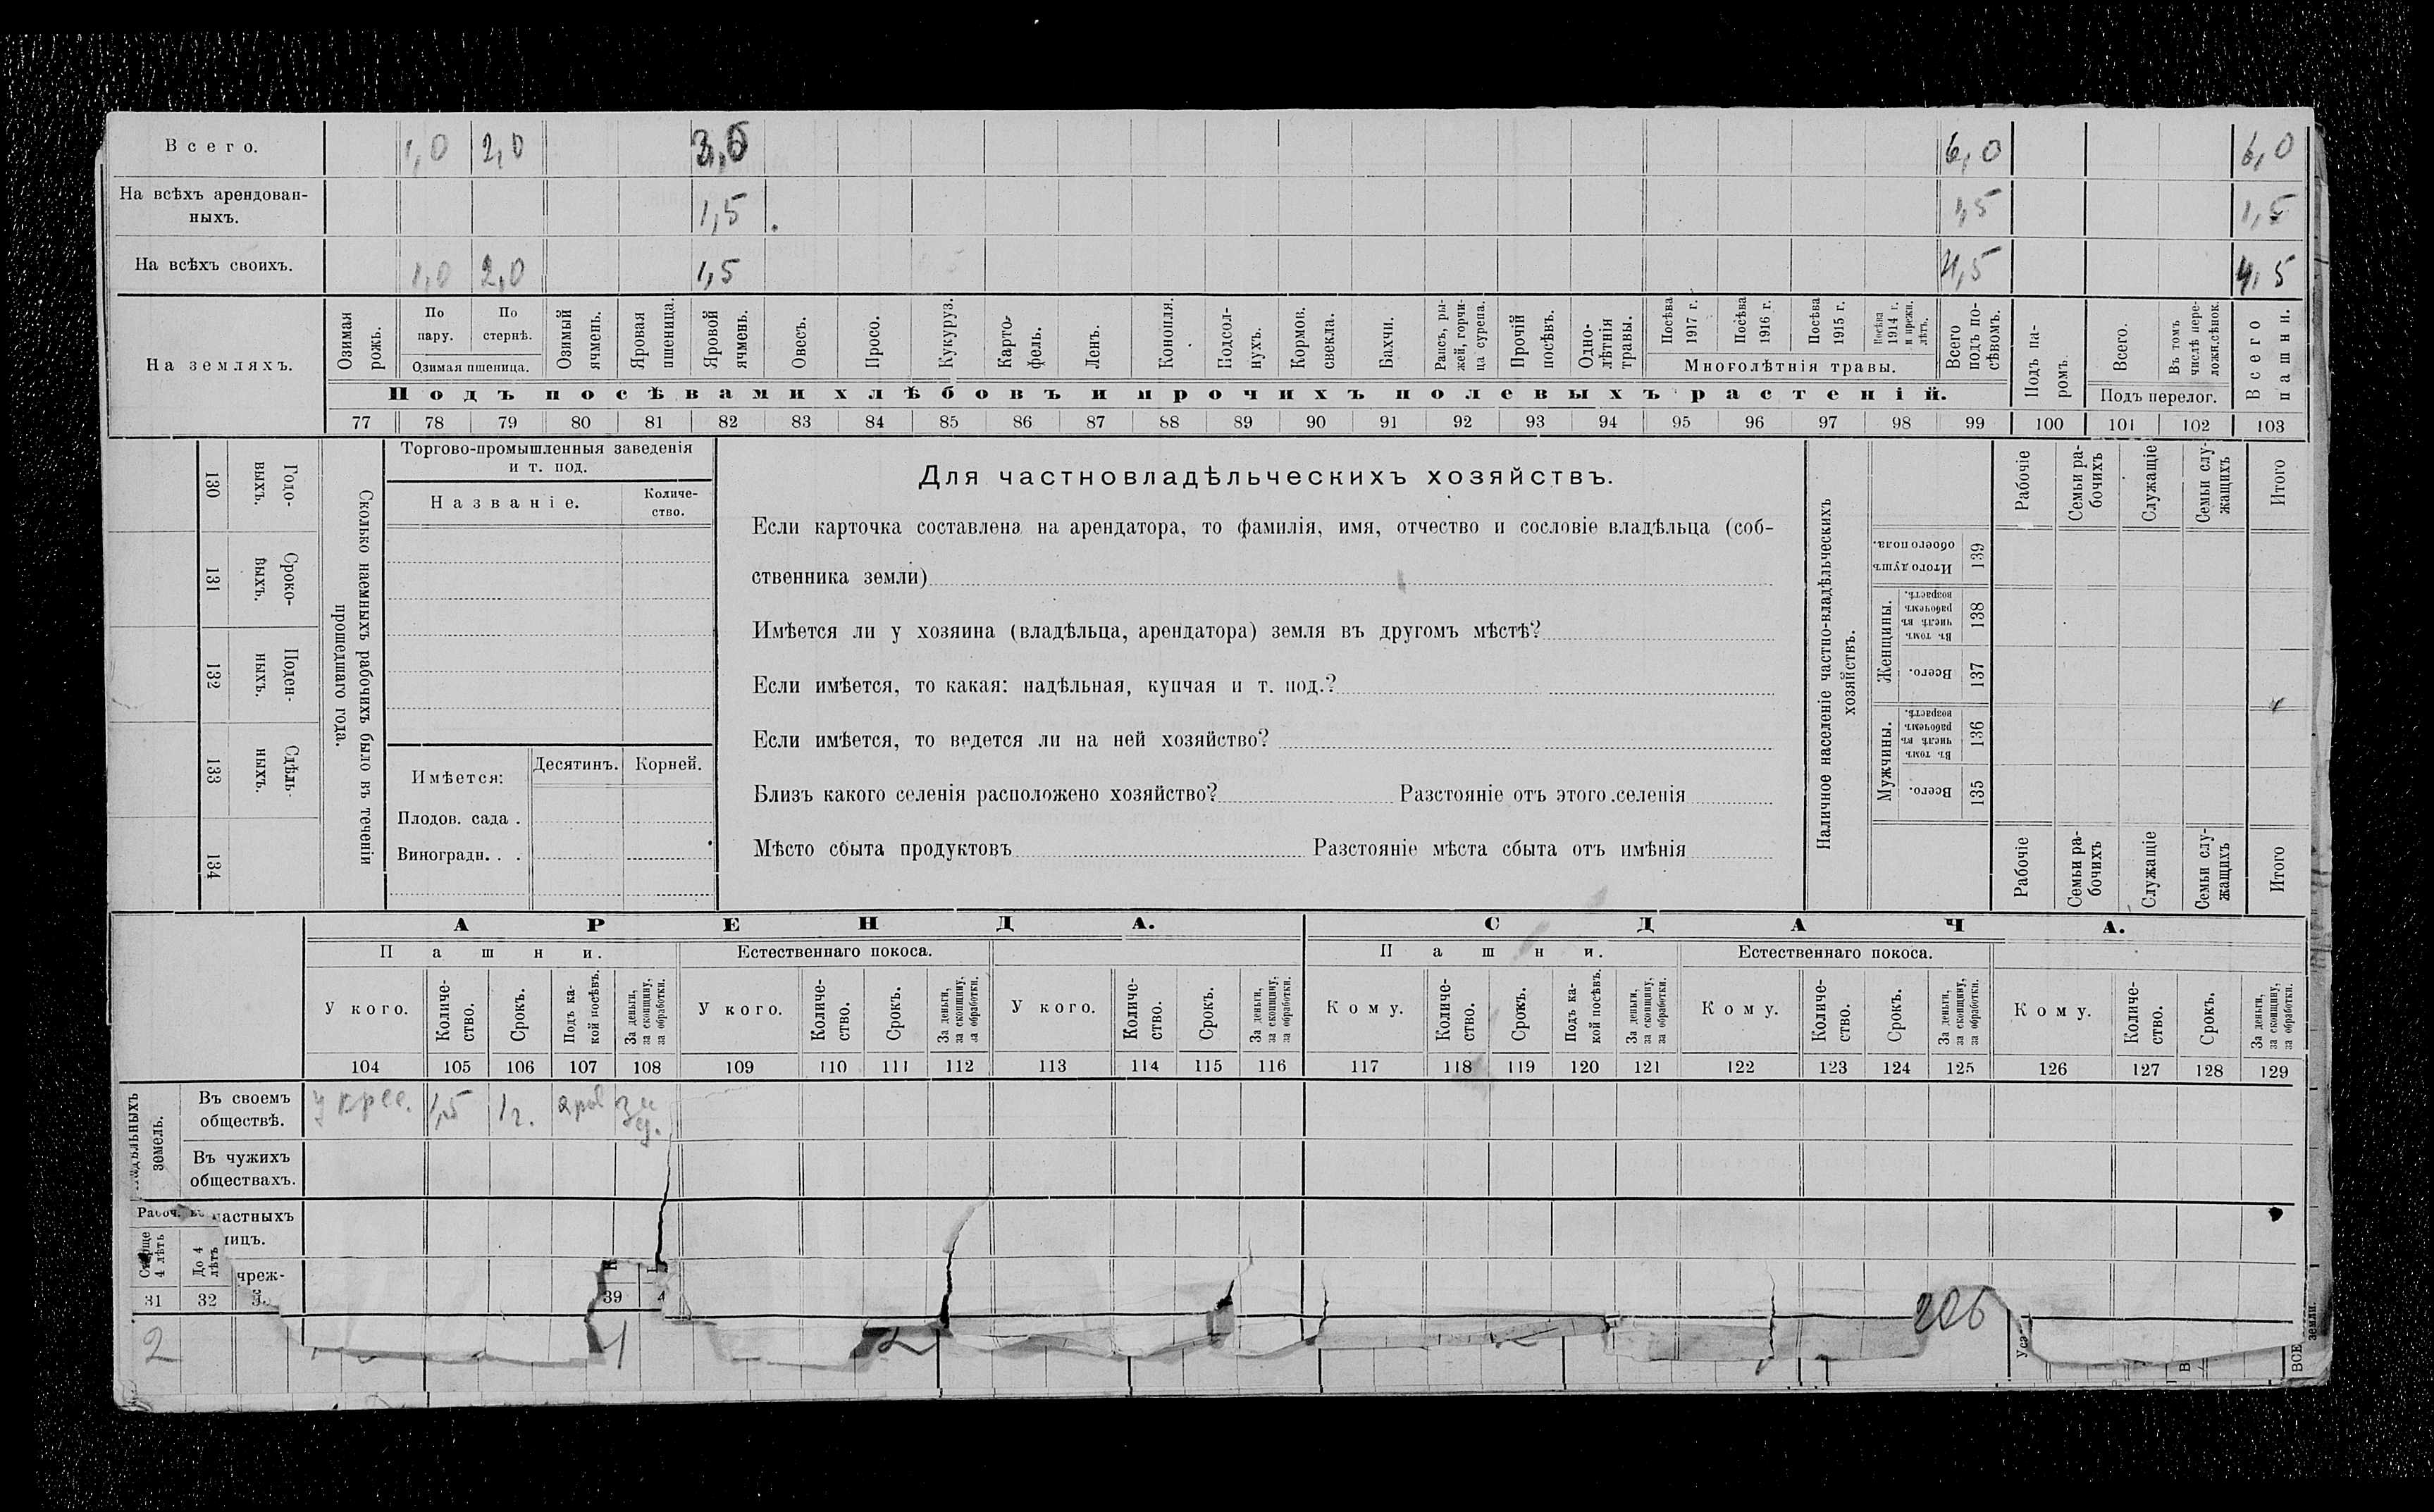 Всего. 1,0 2,0 3,0 6,0 6,0
На всѣхъ арендован-
ныхъ. 1,5 1,5 1,5
На всѣхъ своихъ. 1,0 2,0 1,5 4,5 4,5
На земляхъ.
Озимая рожь.
По пару.
По стернѣ.
Озимая пшеница.
Озимый ячмень.
Яровая пшеница.
Яровой ячмень.
Овесъ.
Просо.
Кукуруз.
Карто-
фель.
Ленъ.
Конопля.
Подсол-
нухъ.
Кормов. свекла.
Бахчи.
Рапсъ, ры-
жей, горчи-
ца сурепа.
Прочій посѣвъ.
Одно-
лѣтнія травы.
Посѣва 1917 г.
Посѣва 1916 г.
Посѣва 1915 г.
Посѣва 1914 г. и прежн. лѣтъ.
Многолѣтнія травы.
Всего подъ по-
сѣвомъ.
Подъ па-
ромъ.
Всего.
Въ томъ числѣ пере-
ложн. сѣнок.
Подъ перелог.
Всего пашни.
Подъ посѣвами хлѣбовъ и прочихъ полевыхъ растеній.
77 78 79 80 81 82 83 84 85 86 87 88 89 90 91 92 93 94 95 96 97 98 99 100 101 102 103
130 Годо-
выхъ.
131 Сроко-
выхъ.
132 Поден-
ныхъ.
133 Сдѣль-
ныхъ.
134
Сколько наемныхъ рабочихъ было въ теченіи
прошедшаго года.
Торгово-промышленныя заведенія
и т. под.
Названіе.
Количе-
ство.
Имѣется:
Десятинъ. Корней.
Плодов. сада .
Виноградн. . .
Для частновладѣльческихъ хозяйствъ.
Если карточка составлена на арендатора, то фамилія, имя, отчество и сословіе владѣльца (соб-
ственника земли)
Имѣется ли у хозяина (владѣльца, арендатора) земля въ другомъ мѣстѣ?
Если имѣется, то какая: надѣльная, купчая и т. под.?
Если имѣется, то ведется ли на ней хозяйство?
Близъ какого селенія расположено хозяйство? Разстояніе отъ этого селенія
Мѣсто сбыта продуктовъ Разстояніе мѣста сбыта отъ имѣнія
Наличное населеніе частно-владѣльческихъ
хозяйствъ.
Итого душъ
обоего пола. 139
Женщины.
Въ томъ числѣ въ рабочемъ возрастѣ. 138
Всего. 137
Мужчины.
Въ томъ числѣ въ рабочемъ возрастѣ. 136
Всего. 135
Рабочіе
Семьи ра-
бочихъ
Служащіе
Семьи слу-
жащихъ
Итого
Рабочіе
Семьи ра-
бочихъ
Служащіе
Семьи слу-
жащихъ
Итого
АРЕНДА. СДАЧА.
Пашни. Естественнаго покоса. Пашни. Естественнаго покоса.
У кого.
Количе-
ство.
Срокъ.
Подъ ка-
кой посѣвъ.
За деньги,
за скопщину,
за обработки.
У кого.
Количе-
ство.
Срокъ.
За деньги,
за скопщину,
за обработки.
У кого.
Количе-
ство.
Срокъ.
За деньги,
за скопщину,
за обработки.
Кому.
Количе-
ство.
Срокъ.
Подъ ка-
кой посѣвъ.
За деньги,
за скопщину,
за обработки.
Кому.
Количе-
ство.
Срокъ.
За деньги,
за скопщину,
за обработки.
Кому.
Количе-
ство.
Срокъ.
За деньги,
за скопщину,
за обработки.
104 105 106 107 108 109 110 111 112 113 114 115 116 117 118 119 120 121 122 123 124 125 126 127 128 129
земель.
Въ своемъ
обществѣ. 1,5 1 г.
Въ чужихъ
обществахъ.
Рабоч.
До 4
лѣтъ
31 32 39
2 206